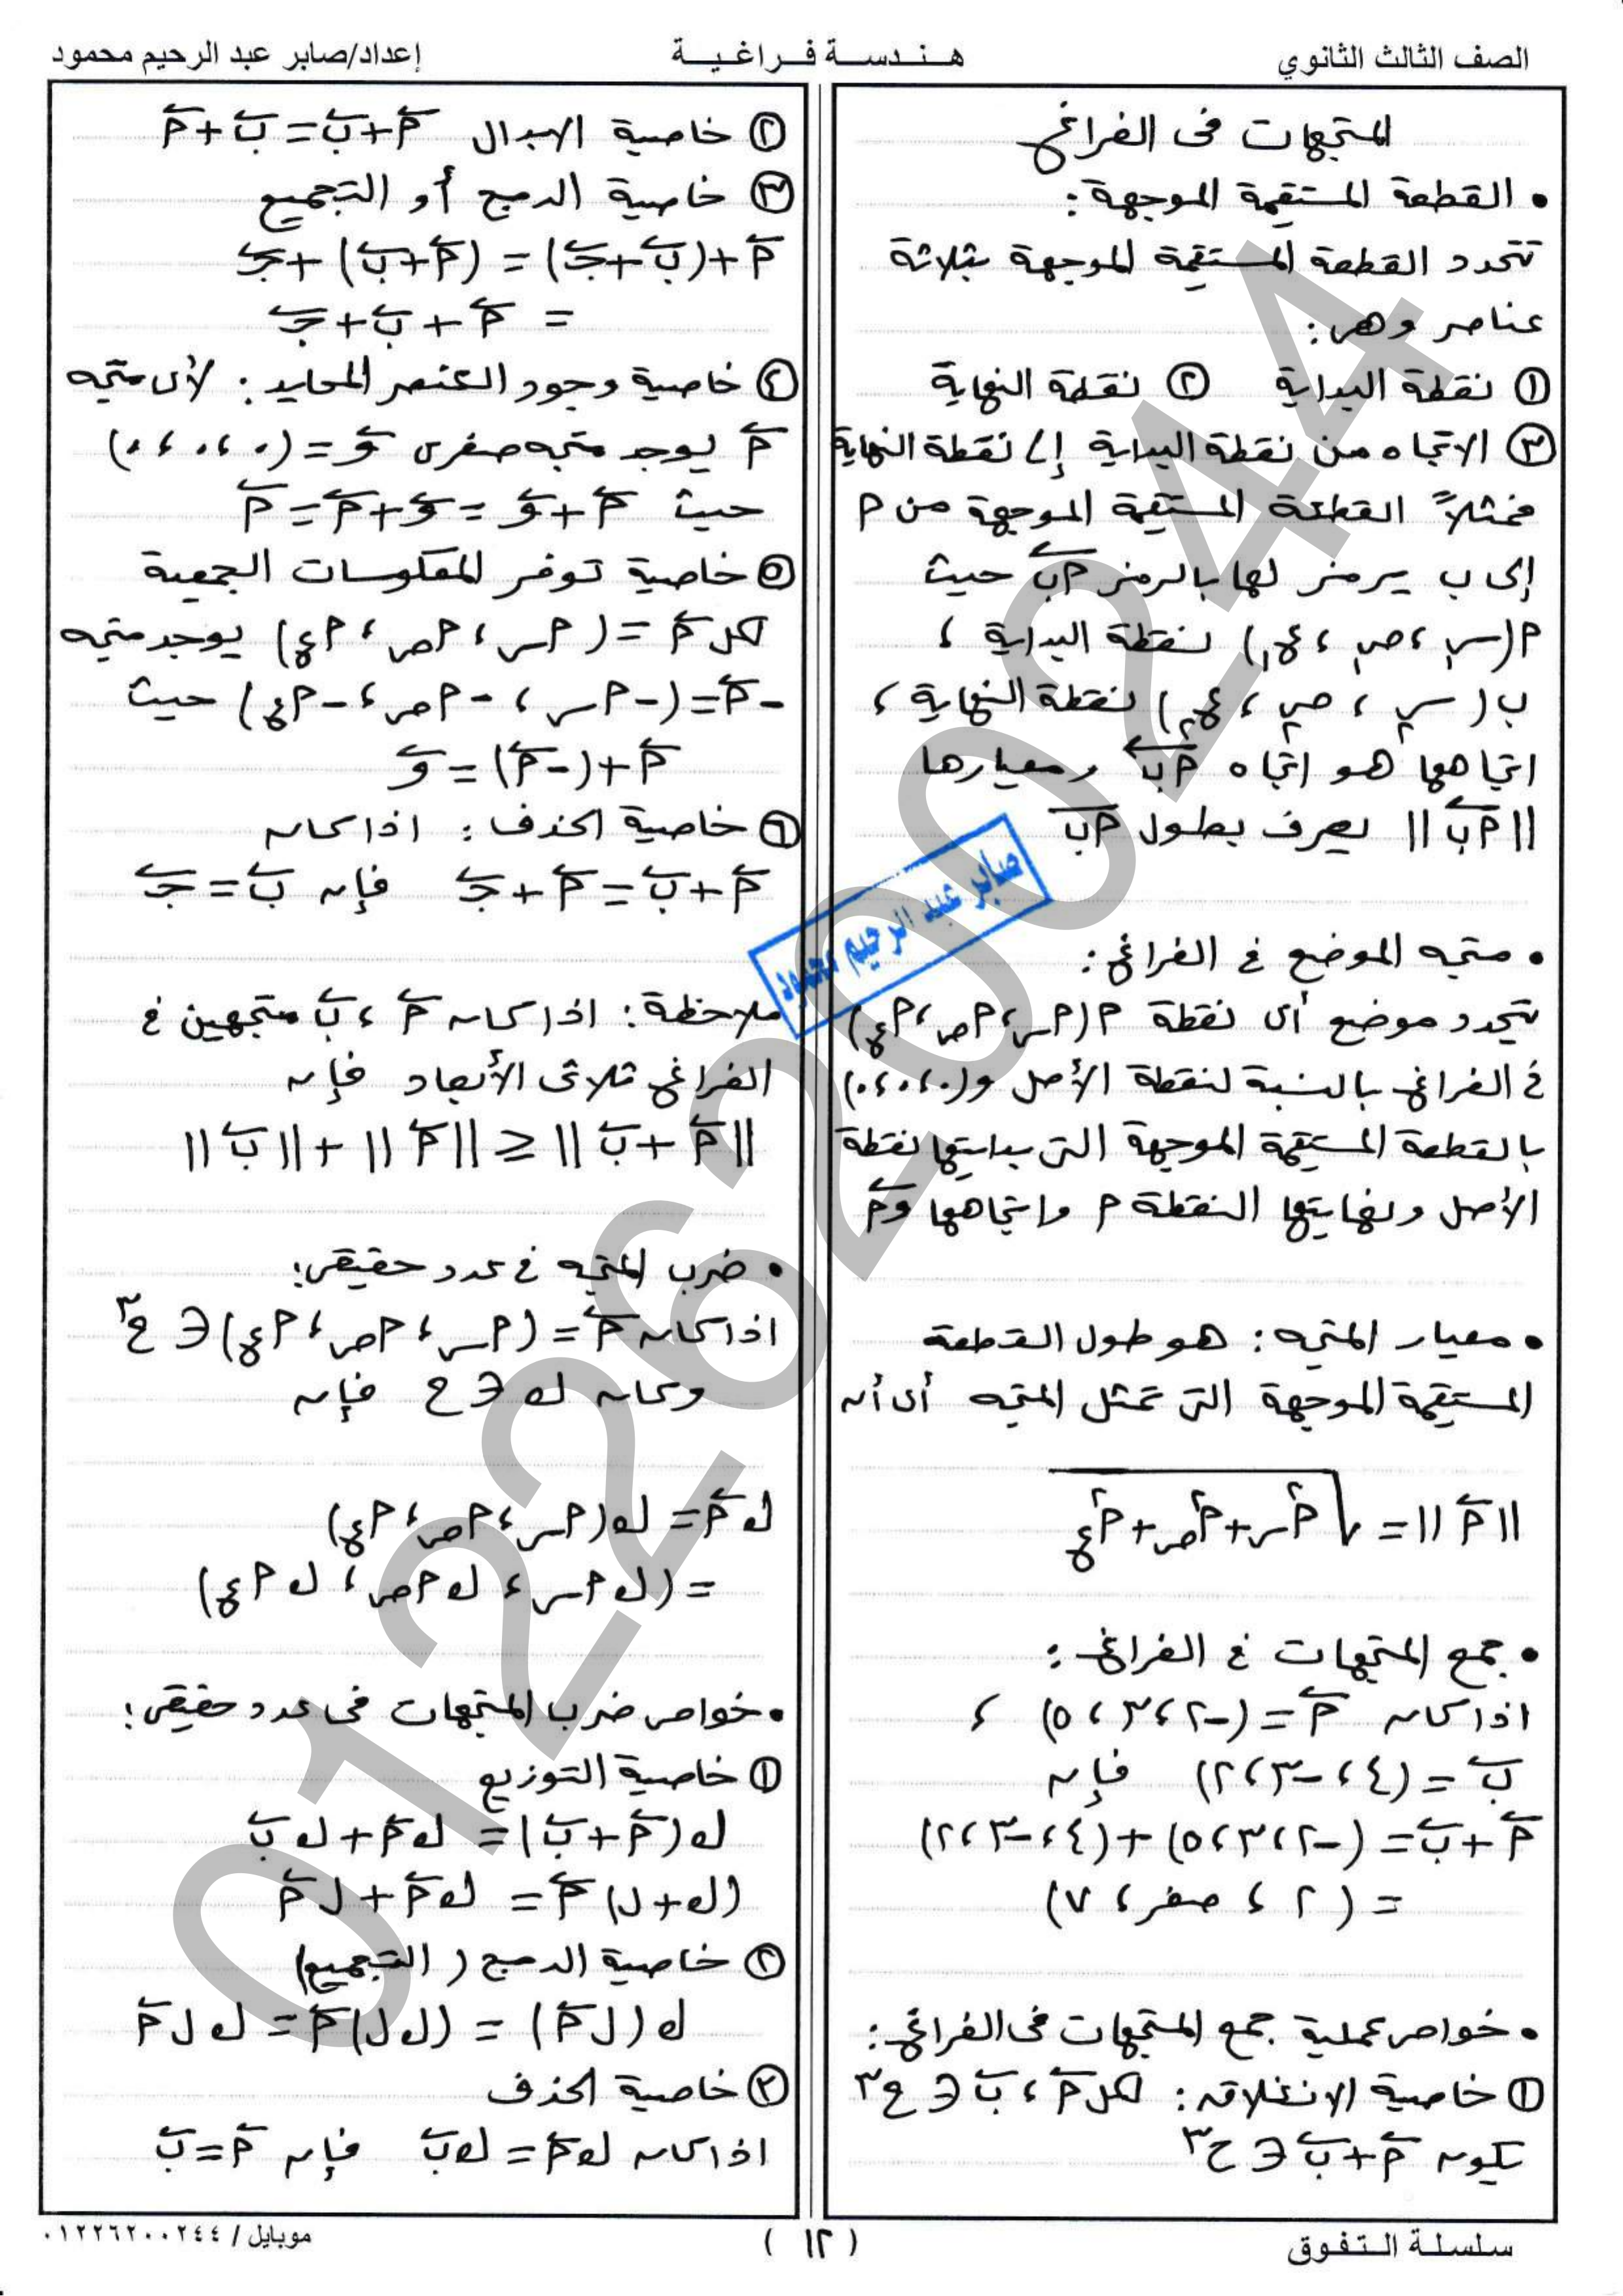 الصف الثالث الثانوي
هـنـدسـة فـراغـيـة
إعداد/صابر عبد الرحيم محمود
المتجهات فى الفراغ
• القطعة المستقيمة الموجهة:
تتحدد القطعة المستقيمة الموجهة بثلاثة
عناصر وهى:
① نقطة البداية ② نقطة النهاية
③ الاتجاه من نقطة البداية إلى نقطة النهاية
فمثلاً القطعة المستقيمة الموجهة من P
إلى ب يرمز لها بالرمز Pب حيث
P(س١، ص١، ع١) نقطة البداية ،
ب(س٢، ص٢، ع٢) نقطة النهاية ،
اتجاهها هو اتجاه Pب ومعيارها
||Pب|| يعرف بطول Pب
• متجه الموضع فى الفراغ:
يتحدد موضع أى نقطة P(Pس، Pص، Pع)
فى الفراغ بالنسبة لنقطة الأصل و(٠،٠،٠)
بالقطعة المستقيمة الموجهة التى بدايتها نقطة
الأصل ونهايتها النقطة P واتجاهها وP
• معيار المتجه: هو طول القطعة
المستقيمة الموجهة التى تمثل المتجه أى أن
||P|| = √(P²س + P²ص + P²ع)
• جمع المتجهات فى الفراغ:
اذا كان P = (-٢،٣،٥) ،
ب = (٤،-٣،٢) فإن
P + ب = (-٢،٣،٥) + (٤،-٣،٢)
= (٢ ، صفر ، ٧)
• خواص عملية جمع المتجهات فى الفراغ:
① خاصية الانغلاق: لكل P ، ب ∈ ح³
يكون P + ب ∈ ح³
② خاصية الابدال P + ب = ب + P
③ خاصية الدمج أو التجميع
P + (ب + جـ) = (P + ب) + جـ
= P + ب + جـ
④ خاصية وجود العنصر المحايد: لأى متجه
P يوجد متجه صفرى و = (٠،٠،٠)
حيث P + و = و + P = P
⑤ خاصية توفر المعكوسات الجمعية
لكل P = (Pس ، Pص ، Pع) يوجد متجه
-P = (-Pس ، -Pص ، -Pع) حيث
P + (-P) = و
⑥ خاصية الحذف: اذا كان
P + ب = P + جـ فإن ب = جـ
صابر عبد الرحيم محمود
ملاحظة: اذا كان P ، ب متجهين فى
الفراغ ثلاثى الأبعاد فإن
||P + ب|| ≤ ||P|| + ||ب||
• ضرب المتجه فى عدد حقيقى:
اذا كان P = (Pس ، Pص ، Pع) ∈ ح³
وكان ك ∈ ح فإن
ك P = ك(Pس ، Pص ، Pع)
= (ك Pس ، ك Pص ، ك Pع)
• خواص ضرب المتجهات فى عدد حقيقى:
① خاصية التوزيع
ك(P + ب) = ك P + ك ب
(ك + ل) P = ك P + ل P
② خاصية الدمج (التجميع)
ك(ل P) = (ك ل) P = ك ل P
③ خاصية الحذف
اذا كان ك P = ك ب فإن P = ب
01226200244
سلسلة التفوق
( ١٢ )
موبايل / ٠١٢٢٦٢٠٠٢٤٤